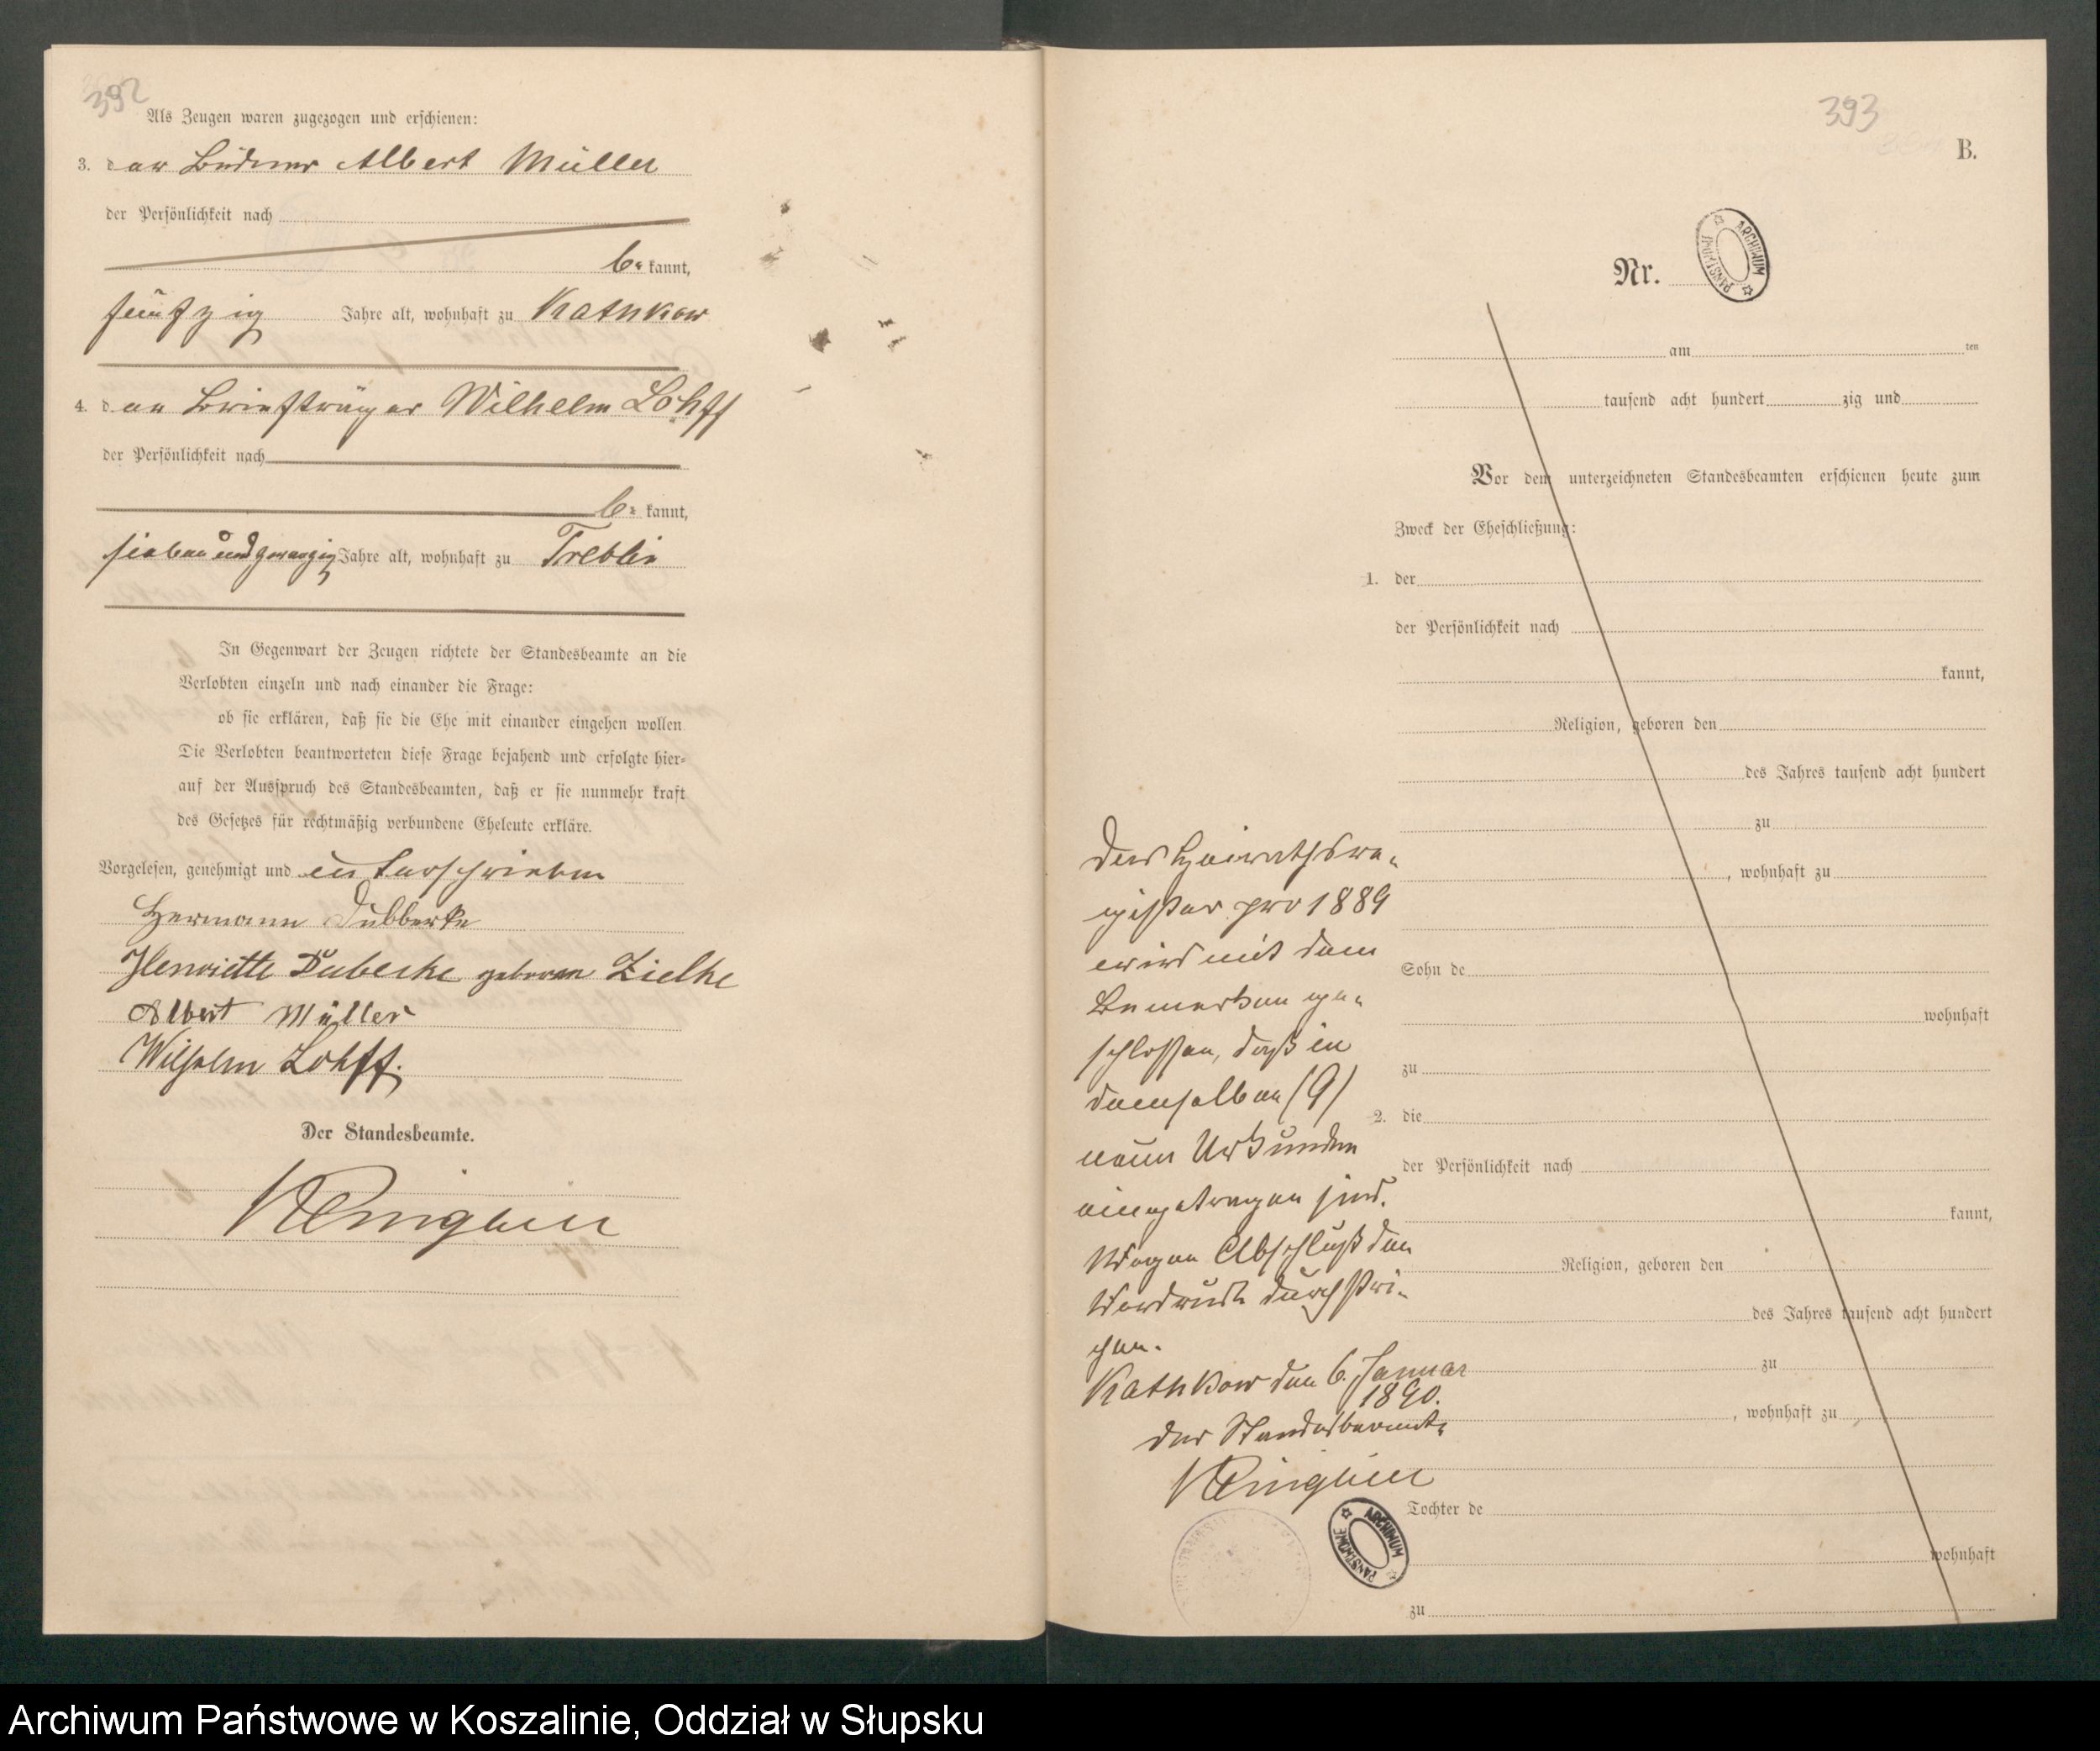 392
Als Zeugen waren zugezogen und erschienen:
3. der Büdner Albert Müller
der Persönlichkeit nach
be kannt,
fünfzig Jahre alt, wohnhaft zu Kathkow
4. der Briefträger Wilhelm Lohff
der Persönlichkeit nach
be kannt,
siebenundzwanzig Jahre alt, wohnhaft zu Treblin
In Gegenwart der Zeugen richtete der Standesbeamte an die
Verlobten einzeln und nach einander die Frage:
ob sie erklären, daß sie die Ehe mit einander eingehen wollen
Die Verlobten beantworteten diese Frage bejahend und erfolgte hier-
auf der Ausspruch des Standesbeamten, daß er sie nunmehr kraft
des Gesetzes für rechtmäßig verbundene Eheleute erkläre.
Vorgelesen, genehmigt und unterschrieben
Hermann Dubberke
Henriette Dubeske geboren Zielke
Albert Müller
Wilhelm Lohff.
Der Standesbeamte.
393
B.
Nr.
ARCHIWUM PAŃSTWOWE
am ten
tausend acht hundert zig und
Vor dem unterzeichneten Standesbeamten erschienen heute zum
Zweck der Eheschließung:
1. der
der Persönlichkeit nach
kannt,
Religion, geboren den
des Jahres tausend acht hundert
zu
, wohnhaft zu
Sohn de
wohnhaft
zu
2. die
der Persönlichkeit nach
kannt,
Religion, geboren den
des Jahres tausend acht hundert
zu
, wohnhaft zu
Tochter de
wohnhaft
zu
Das Heirathsre-
gister pro 1889
wird mit dem
Bemerken ge-
schlossen, daß in
demselben (9)
neun Urkunden
eingetragen sind.
Wegen Abschluß den
Vordruck durchstri-
chen.
Kathkow den 6. Januar
1890.
Der Standesbeamte
ARCHIWUM PAŃSTWOWE
Archiwum Państwowe w Koszalinie, Oddział w Słupsku